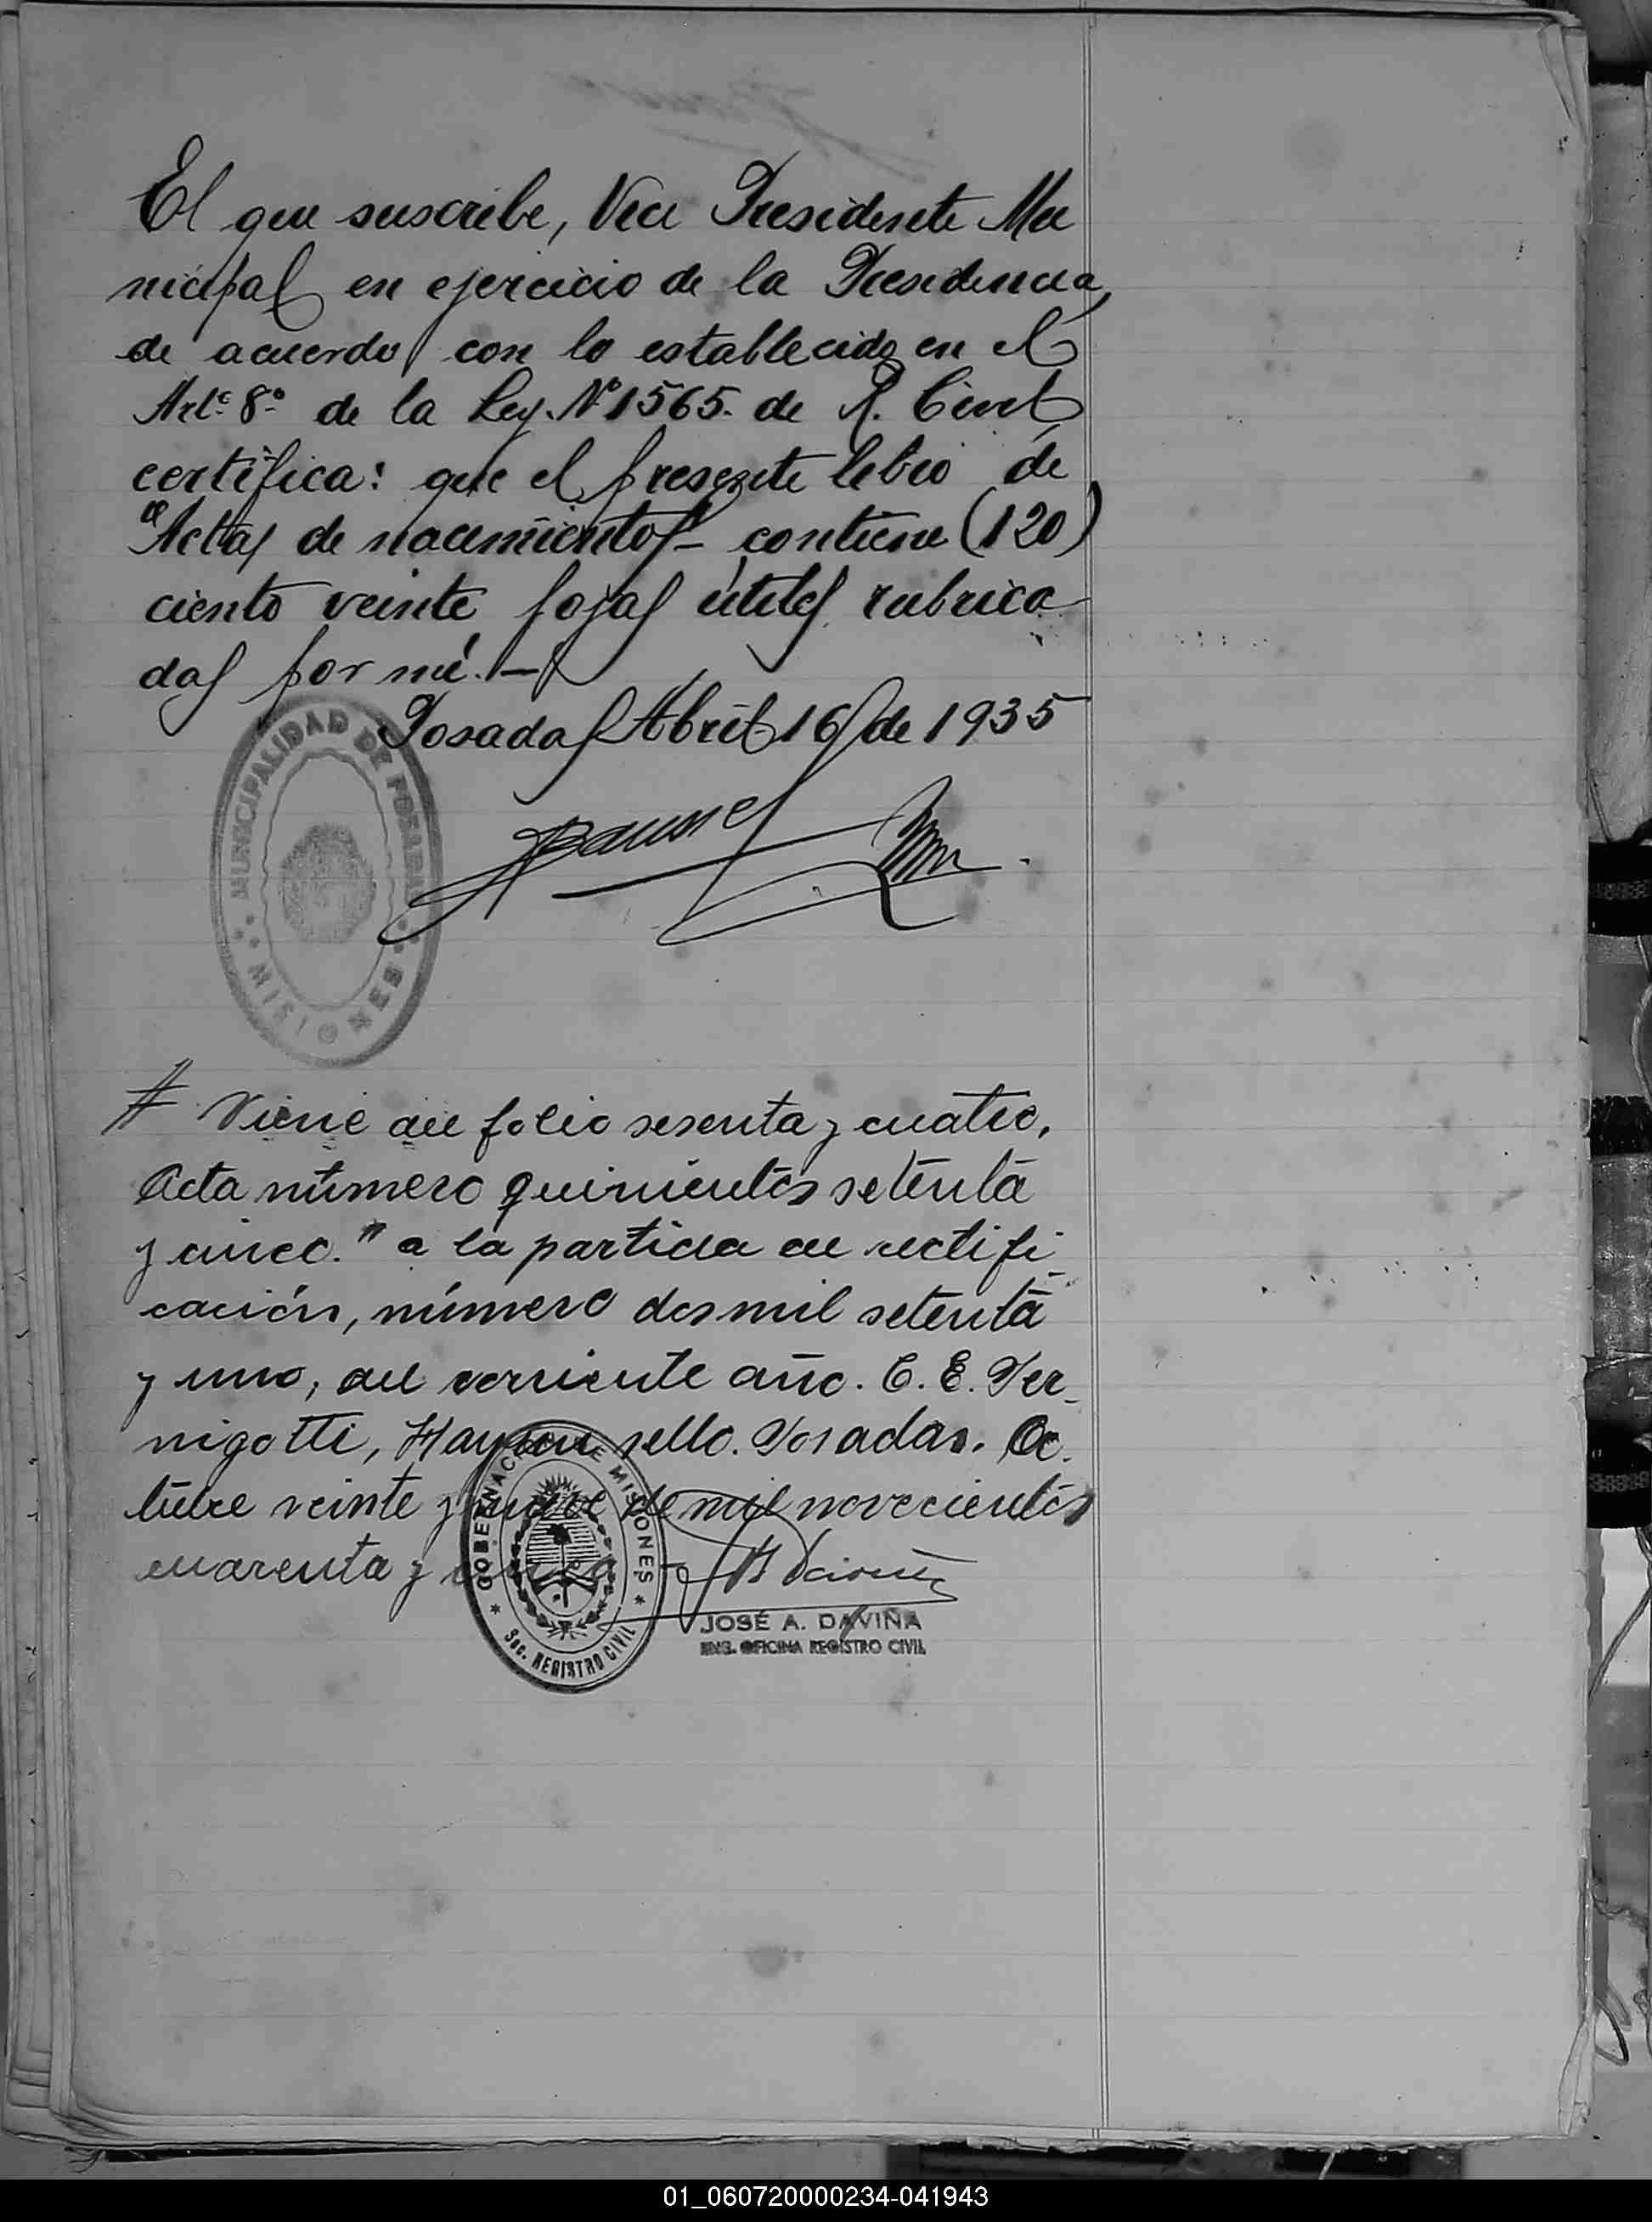 El que suscribe, Vice Presidente Mu
nicipal en ejercicio de la Presidencia,
de acuerdo con lo establecido en el
Artº 8º de la Ley Nº 1565. de R. Civil
certifica: que el presente libro de
"Actas de nacimientos" contiene (120)
ciento veinte fojas útiles rubrica
das por mí.-
Posadas Abril 16 de 1935
MUNICIPALIDAD DE POSADAS
MISIONES
# Viene del folio sesenta y cuatro,
Acta número quinientos setenta
y cinco." a la partida de rectifi
cación, número dos mil setenta
y uno, del corriente año. C. E. Per
nigotti, Hay un sello. Posadas. Oc
tubre veinte y nueve de mil novecientos
cuarenta y
GOBERNACION DE MISIONES
Sec. REGISTRO CIVIL
JOSÉ A. DAVIÑA
ENC. OFICINA REGISTRO CIVIL
01_060720000234-041943